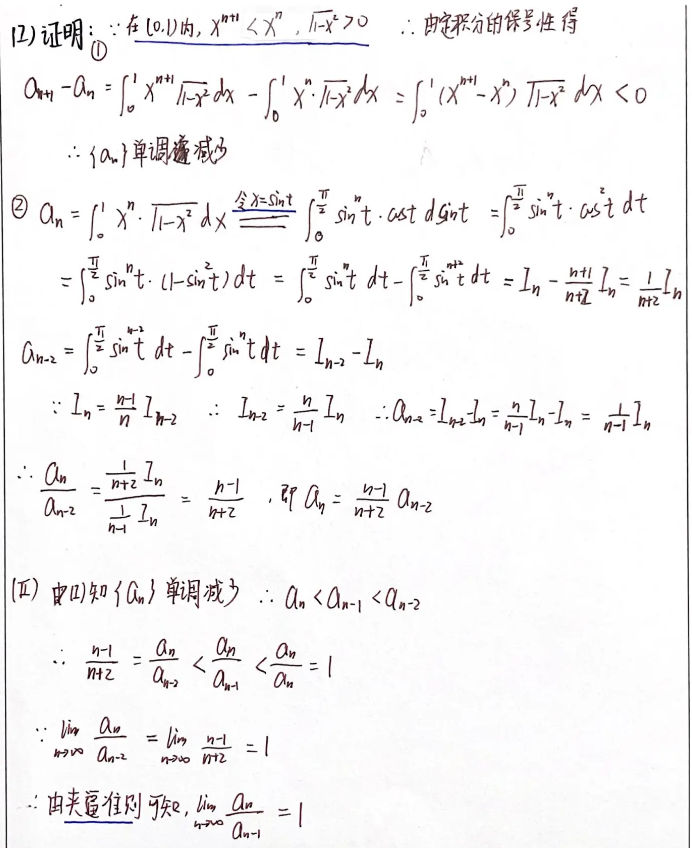 (I) 证明: ① ∵ 在(0,1)内, xⁿ⁺¹ < xⁿ, √1-x² > 0 ∴ 由定积分的保号性得
aₙ₊₁ - aₙ = ∫₀¹ xⁿ⁺¹ √1-x² dx - ∫₀¹ xⁿ·√1-x² dx = ∫₀¹ (xⁿ⁺¹ - xⁿ) √1-x² dx < 0
∴ {aₙ} 单调减少
② aₙ = ∫₀¹ xⁿ·√1-x² dx 令x=sint ═══ ∫₀^(π/2) sinⁿt·cost dsint = ∫₀^(π/2) sinⁿt·cos²t dt
= ∫₀^(π/2) sinⁿt·(1-sin²t) dt = ∫₀^(π/2) sinⁿt dt - ∫₀^(π/2) sinⁿ⁺²t dt = Iₙ - (n+1)/(n+2) Iₙ = 1/(n+2) Iₙ
aₙ₋₂ = ∫₀^(π/2) sinⁿ⁻²t dt - ∫₀^(π/2) sinⁿt dt = Iₙ₋₂ - Iₙ
∵ Iₙ = (n-1)/n Iₙ₋₂ ∴ Iₙ₋₂ = n/(n-1) Iₙ ∴ aₙ₋₂ = Iₙ₋₂ - Iₙ = n/(n-1) Iₙ - Iₙ = 1/(n-1) Iₙ
∴ aₙ/aₙ₋₂ = (1/(n+2) Iₙ)/(1/(n-1) Iₙ) = (n-1)/(n+2) , 即 aₙ = (n-1)/(n+2) aₙ₋₂
(II) 由(I)知 {aₙ} 单调减少 ∴ aₙ < aₙ₋₁ < aₙ₋₂
∴ (n-1)/(n+2) = aₙ/aₙ₋₂ < aₙ/aₙ₋₁ < aₙ/aₙ = 1
∵ lim n→∞ aₙ/aₙ₋₂ = lim n→∞ (n-1)/(n+2) = 1
∴ 由夹逼准则可知, lim n→∞ aₙ/aₙ₋₁ = 1